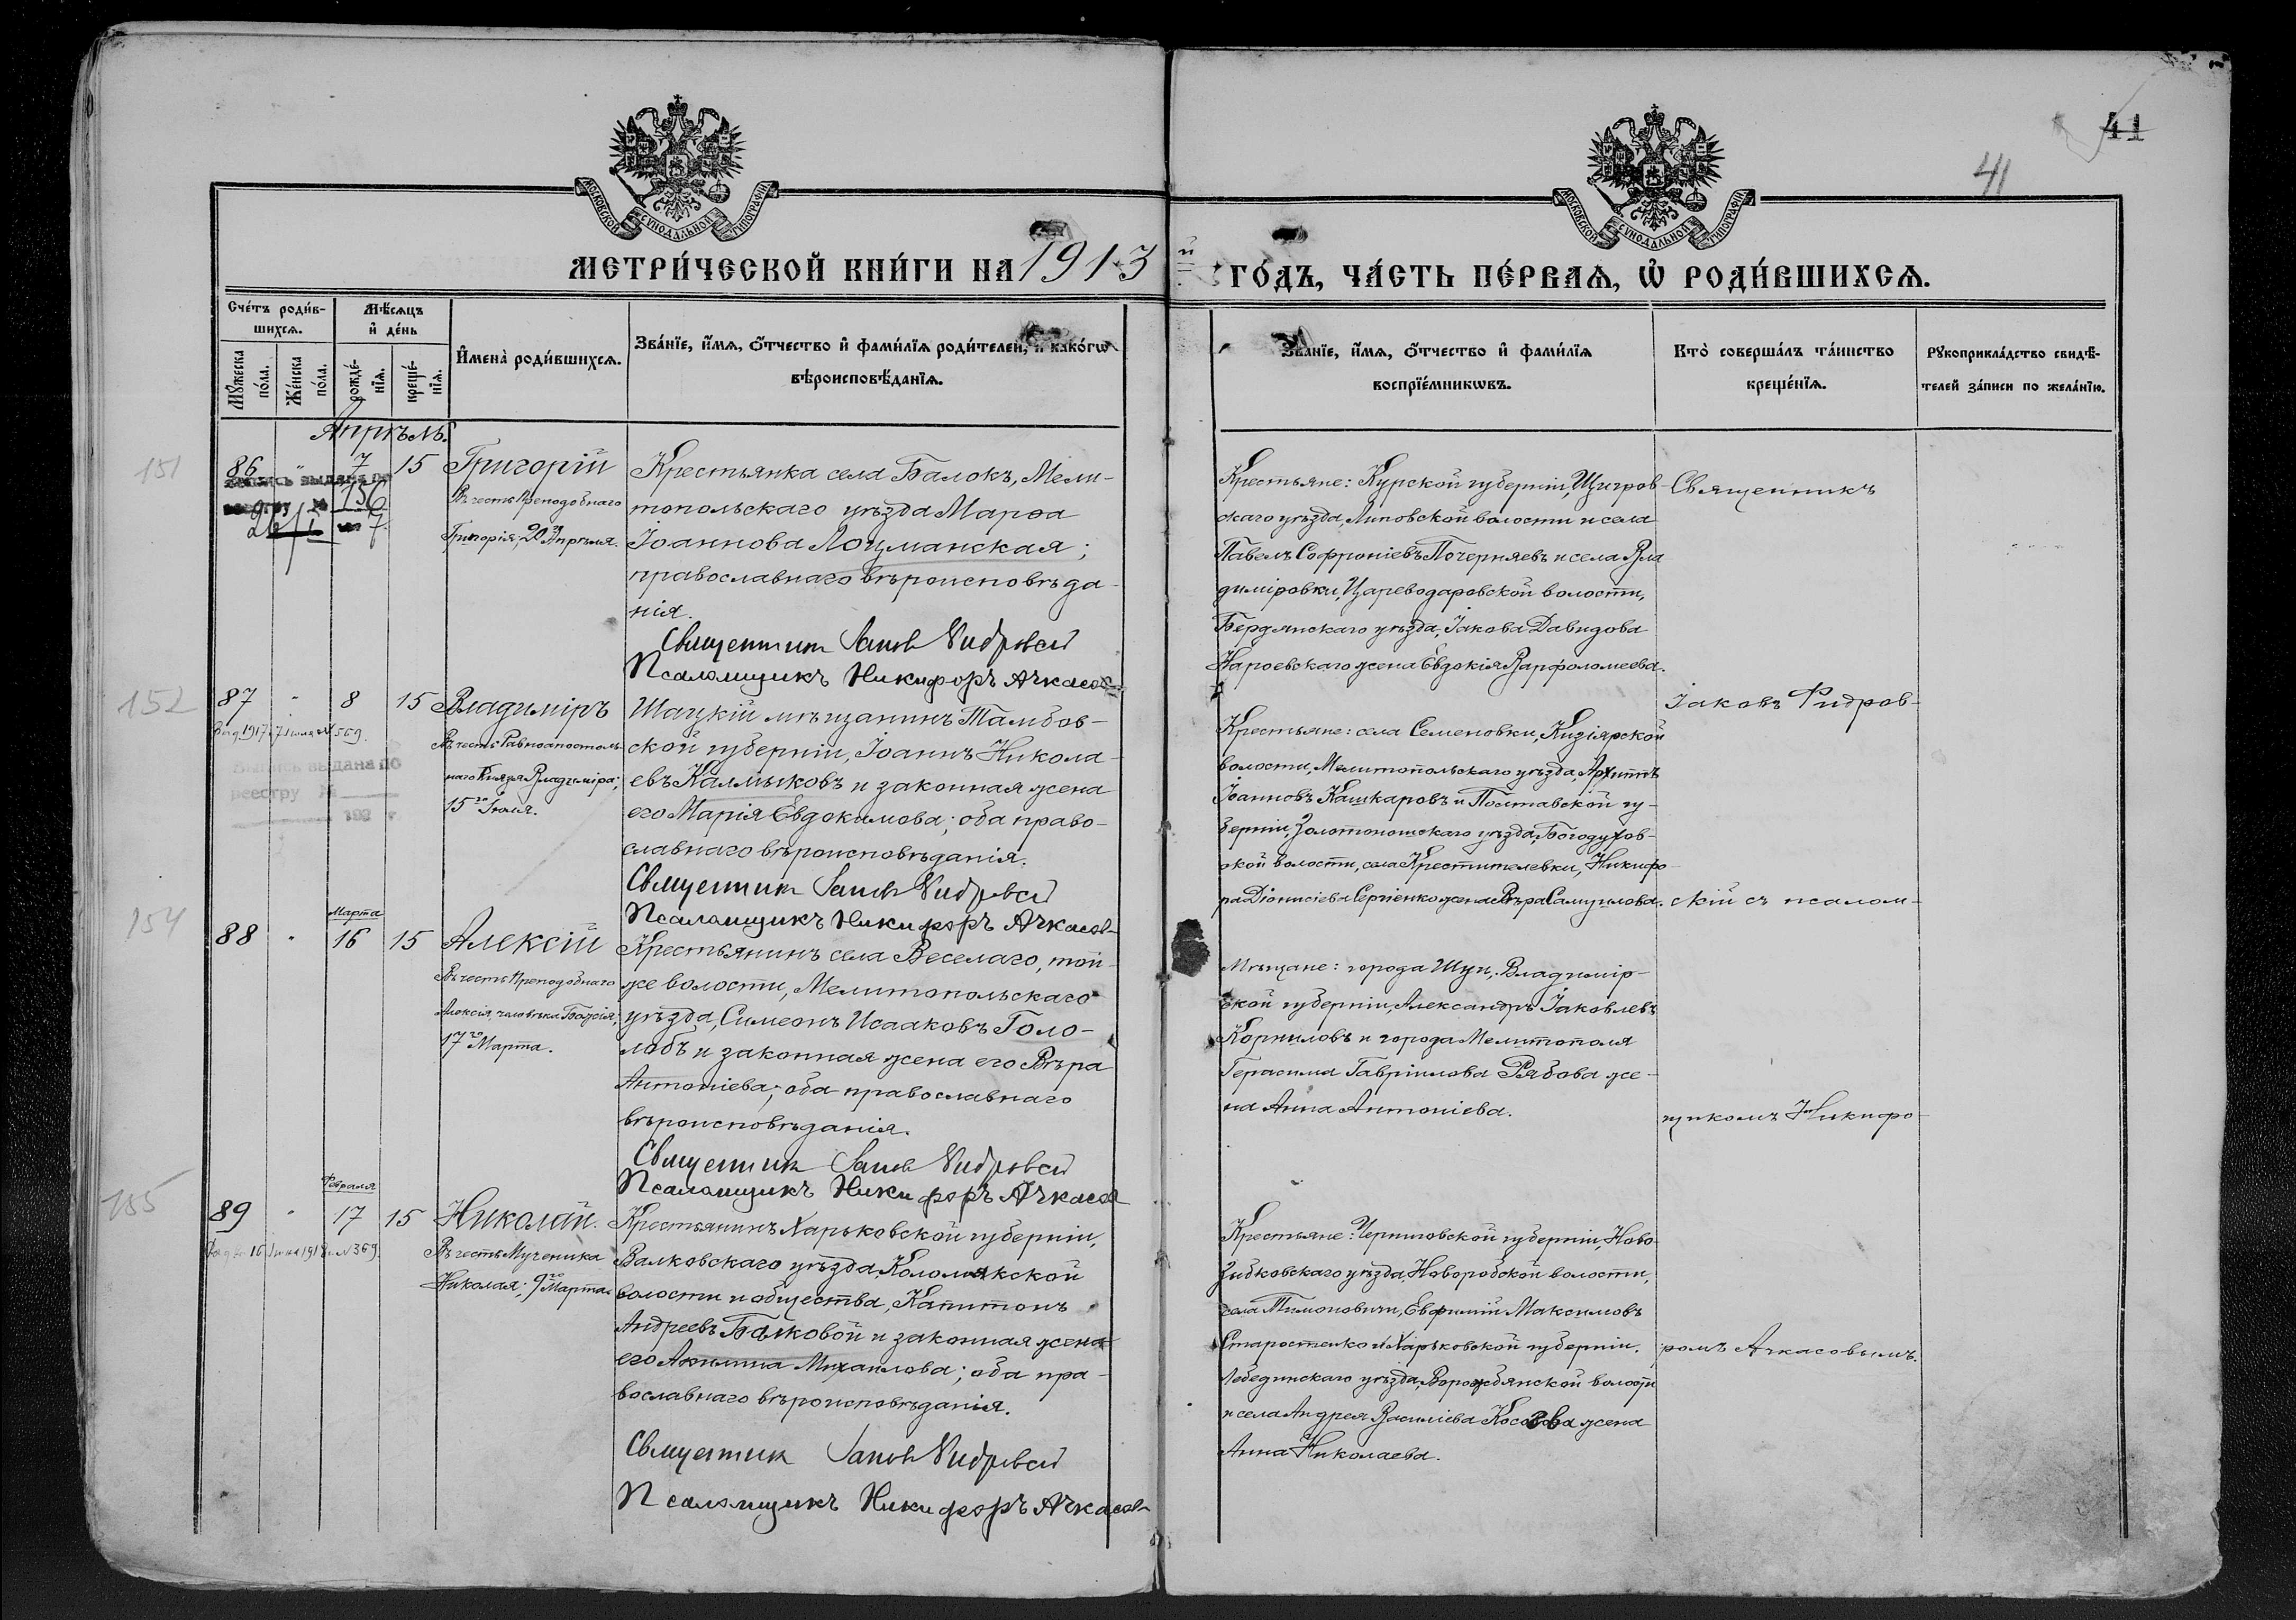 41
41
МОСКОВСКОЙ СѴНОДАЛЬНОЙ ТИПОГРАФІИ
МОСКОВСКОЙ СѴНОДАЛЬНОЙ ТИПОГРАФІИ
МЕТРИ́ЧЕСКОЙ КНИ́ГИ НА 1913 й ГО́ДЪ, ЧА́СТЬ ПЕ́РВАѦ, Ѡ҆ РОДИ́ВШИХСѦ.
Сче́тъ роди́в-
шихсѧ.
Мꙋ́жеска
по́ла.
Же́нска
по́ла.
Мѣ́сѧцъ
и҆ де́нь
рожде́-
нїѧ.
креще́-
нїѧ.
И҆мена̀ роди́вшихсѧ.
Зва́нїе, и҆́мѧ, ѻ҆́тчество и҆ фами́лїѧ роди́телей, и҆ како́гѡ
вѣроисповѣ́данїѧ.
Зва́нїе, и҆́мѧ, ѻ҆́тчество и҆ фами́лїѧ
воспрїе́мникѡвъ.
Кто̀ соверша́лъ та́инство
креще́нїѧ.
Рꙋкоприкла́дство свидѣ́-
телей за́писи по жела́нїю.
Апрѣль.
151
86 " 7 15 Григорій
Въ честь Преподобнаго
Григорія, 20го Апрѣля.
выдана по
реестру № 156
Крестьянка села Балокъ, Мели-
топольскаго уѣзда Марѳа
Іоаннова Лоцманская;
православнаго вѣроисповѣда-
нія.
Священник Іаков Фидровский
Псаломщикъ Никифоръ Ачкасов
Крестьяне: Курской губерніи, Щигров-
скаго уѣзда, Липовской волости и села
Павелъ Софроніевъ Почерняевъ и села Вла
диміровки, Цареводаровской волости,
Бердянскаго уѣзда, Іакова Давидова
Нароевскаго жена Евдокія Варфоломеева.
Священникъ
152
87 " 8 15 Владиміръ
Въ честь Равноапостоль-
наго Князя Владиміра;
15го Іюля.
1917 7 Іюля № 569.
Выпись выдана по
реестру №
192 г.
Шацкій мѣщанинъ Тамбов-
ской губерніи, Іоаннъ Никола-
евъ Калмыковъ и законная жена
его Марія Евдокимова; оба право-
славнаго вѣроисповѣданія.
Священник Іаков Фидровский
Псаломщикъ Никифоръ Ачкасов
Крестьяне: села Семеновки, Кизіярской
волости, Мелитопольскаго уѣзда, Архиппъ
Іоанновъ Кашкаровъ и Полтавской гу-
берніи, Золотоношскаго уѣзда, Богодухов-
ской волости, села Крестителевки, Никифо-
ра Діонисіева Сергіенко жена Вѣра Самуилова.
Іаковъ Фидров-
скій съ псалом-
154
Марта
88 " 16 15 Алексій
Въ честь Преподобнаго
Алексія, человѣка Божія;
17го Марта.
Крестьянинъ села Веселаго, той-
же волости, Мелитопольскаго
уѣзда, Симеонъ Исааковъ Голо-
лобъ и законная жена его Вѣра
Антоніева; оба православнаго
вѣроисповѣданія.
Священник Іаков Фидровский
Псаломщикъ Никифоръ Ачкасов
Мѣщане: города Шуи, Владимір-
ской губерніи, Александръ Іаковлевъ
Корниловъ и города Мелитополя
Герасима Гавріилова Рябова же-
на Анна Антоніева.
щикомъ Никифо-
155
Февраля
89 " 17 15 Николай.
Въ честь Мученика
Николая; 9го Марта.
16 1918 № 369.
Крестьянинъ Харьковской губерніи,
Валковскаго уѣзда, Коломакской
волости и общества, Капитонъ
Андреевъ Балковой и законная жена
его Акилина Михаилова; оба пра-
вославнаго вѣроисповѣданія.
Священник Іаков Фидровский
Псаломщикъ Никифоръ Ачкасов
Крестьяне: Черниговской губерніи, Ново-
зибковскаго уѣзда, Новоробской волости,
села Тимоновичи, Евфимій Максимовъ
Старостенко и Харьковской губерніи,
Лебединскаго уѣзда, Ворожбянской волости
и села Андрея Василіева Косова жена
Анна Николаева.
ромъ Ачкасовымъ.